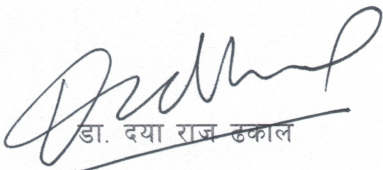 डा. दया राज ढकाल